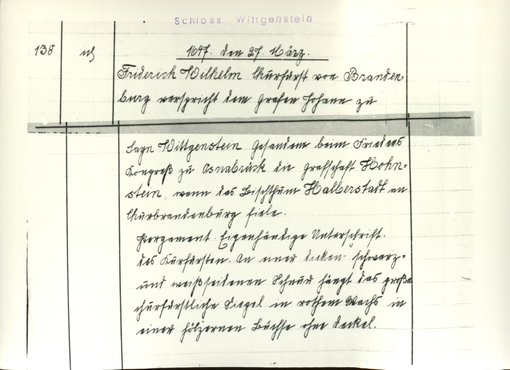 Schloss Wittgenstein
138
1647. den 27. März.
Friderich Wilhelm Kurfürst von Branden-
burg verspricht dem Grafen Johann zu
Sayn Wittgenstein Gesandem beim Friedens
Kongreß zu Osnabrück die Grafschaft Hohn-
stein, wenn das Bischthum Halberstadt an
Kurbrandenburg fiele.
Pergament. Eigenhändige Unterschrift
des Kurfürsten. An einer dicken schwarz-
und weißseidenen Schnur hängt das große
churfürstliche Siegel in rothem Wachs in
einer hölzernen Büchse ohne Deckel.